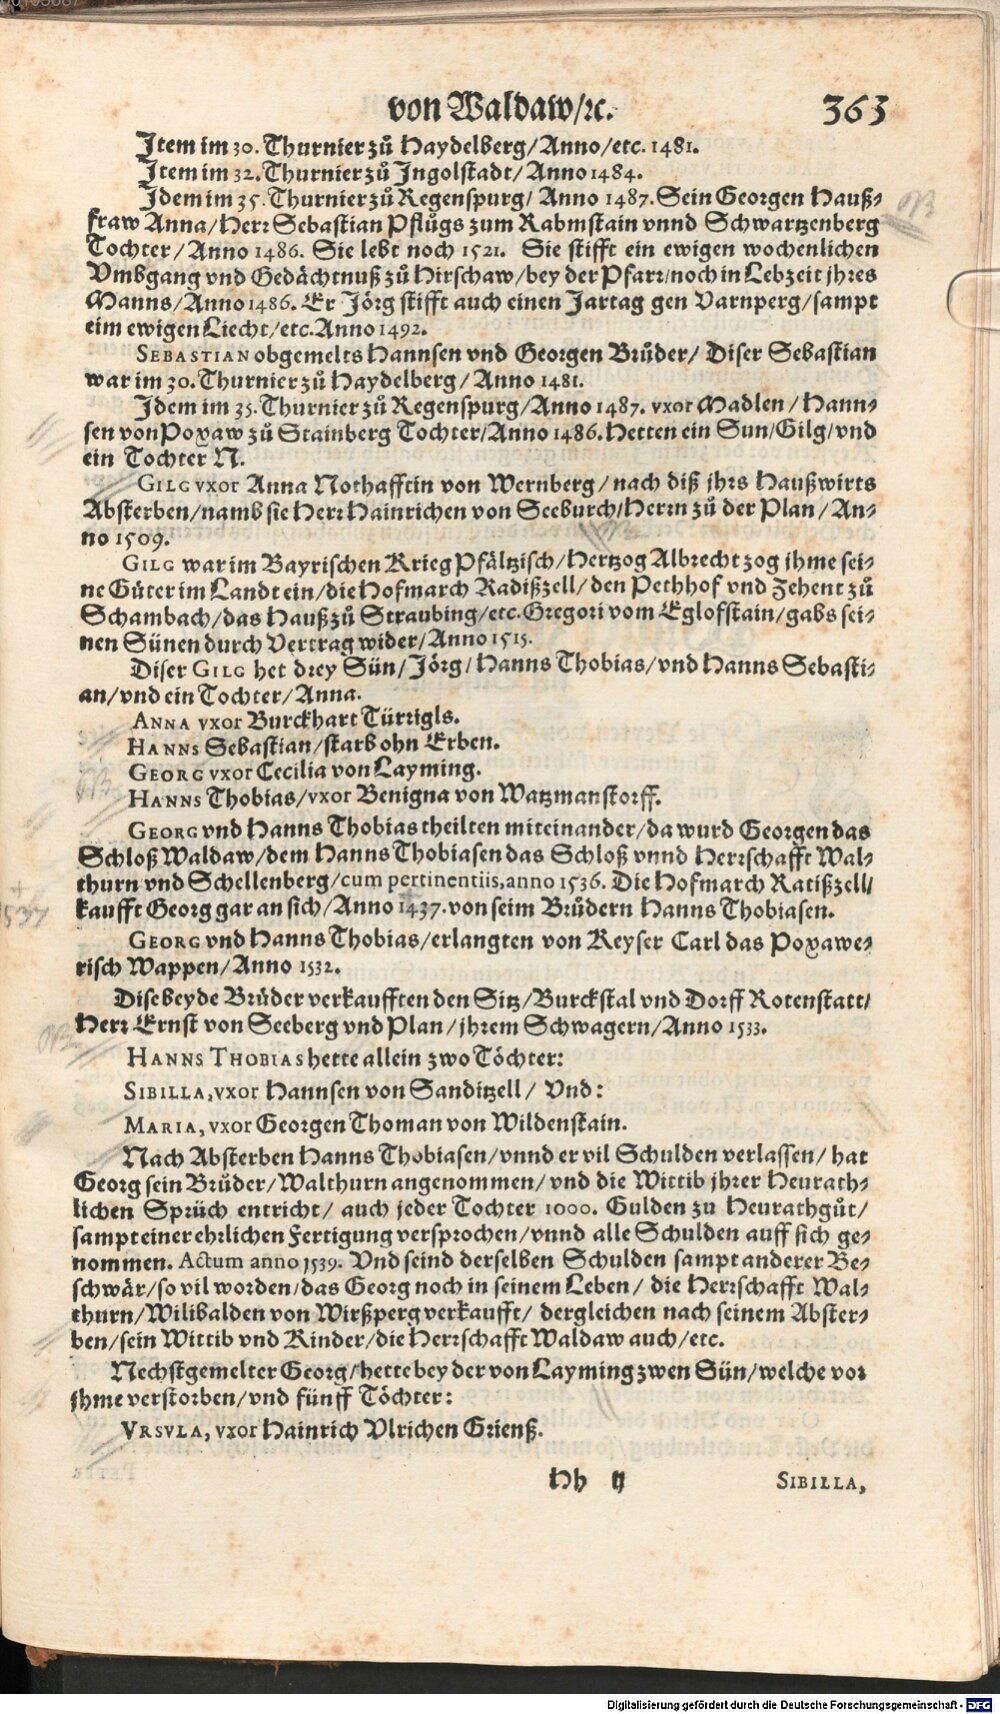 von Waldaw/ꝛc. 363
Item im 30. Thurnier zů Haydelberg/Anno/etc. 1481.
Item im 32. Thurnier zů Ingolstadt/Anno 1484.
Idem im 35. Thurnier zů Regenspurg/ Anno 1487. Sein Georgen Hauß-
fraw Anna/Herr Sebastian Pflůgs zum Rabmstain vnnd Schwartzenberg
Tochter/Anno 1486. Sie lebt noch 1521. Sie stifft ein ewigen wochenlichen
Vmbgang vnd Gedächtnuß zů Hirschaw/bey der Pfarr/noch in Lebzeit jhres
Manns/Anno 1486. Er Jörg stifft auch einen Jartag gen Varnperg/sampt
eim ewigen Liecht/etc. Anno 1492.
SEBASTIAN obgemelts Hannsen vnd Georgen Brůder/ Diser Sebastian
war im 30. Thurnier zů Haydelberg/Anno 1481.
Idem im 35. Thurnier zů Regenspurg/Anno 1487. vxor Madlen/Hann-
sen von Poxaw zů Stainberg Tochter/Anno 1486. Hetten ein Sun/Gilg/vnd
ein Tochter N.
GILG vxor Anna Nothafftin von Wernberg/nach diß jhrs Haußwirts
Absterben/namb sie Herr Hainrichen von Seeburch/Herrn zů der Plan/An-
no 1509.
GILG war im Bayrischen Krieg Pfältzisch/Hertzog Albrecht zog ihme sei-
ne Güter im Landt ein/die Hofmarch Radißzell/den Pethhof vnd Zehent zů
Schambach/das Hauß zů Straubing/etc. Gregori vom Eglofstain/gabs sei-
nen Sünen durch Vertrag wider/Anno 1515.
Diser GILG het drey Sün/Jörg/Hanns Thobias/vnd Hanns Sebasti-
an/vnd ein Tochter/Anna.
ANNA vxor Burckhart Türrigls.
HANNS Sebastian/starb ohn Erben.
GEORG vxor Cecilia von Layming.
HANNS Thobias/vxor Benigna von Watzmanstorff.
GEORG vnd Hanns Thobias theilten miteinander/da wurd Georgen das
Schloß Waldaw/dem Hanns Thobiasen das Schloß vnnd Herrschafft Wal-
thurn vnd Schellenberg/cum pertinentiis, anno 1536. Die Hofmarch Ratißzell/
kaufft Georg gar an sich/Anno 1437. von seim Brůdern Hanns Thobiasen.
1537
GEORG vnd Hanns Thobias/erlangten von Keyser Carl das Poxawe-
risch Wappen/Anno 1532.
Dise beyde Brüder verkaufften den Sitz/Burckstal vnd Dorff Rotenstatt/
Herr Ernst von Seeberg vnd Plan/jhrem Schwagern/Anno 1533.
HANNS THOBIAS hette allein zwo Töchter:
SIBILLA, vxor Hannsen von Sanditzell/ Vnd:
MARIA, vxor Georgen Thoman von Wildenstain.
Nach Absterben Hanns Thobiasen/vnnd er vil Schulden verlassen/hat
Georg sein Brůder/Walthurn angenommen/vnd die Wittib jhrer Heurath-
lichen Sprüch entricht/ auch jeder Tochter 1000. Gulden zu Heurathgůt/
sampt einer ehrlichen Fertigung versprochen/vnnd alle Schulden auff sich ge-
nommen. Actum anno 1539. Vnd seind derselben Schulden sampt anderer Be-
schwär/so vil worden/das Georg noch in seinem Leben/ die Herrschafft Wal-
thurn/Wilibalden von Wirßperg verkaufft/ dergleichen nach seinem Abster-
ben/sein Wittib vnd Kinder/die Herrschafft Waldaw auch/etc.
Nechstgemelter Georg/hette bey der von Layming zwen Sün/welche vor
jhme verstorben/vnd fünff Töchter:
VRSVLA, vxor Hainrich Vlrichen Grienß.
Hh ij SIBILLA,
Digitalisierung gefördert durch die Deutsche Forschungsgemeinschaft - DFG